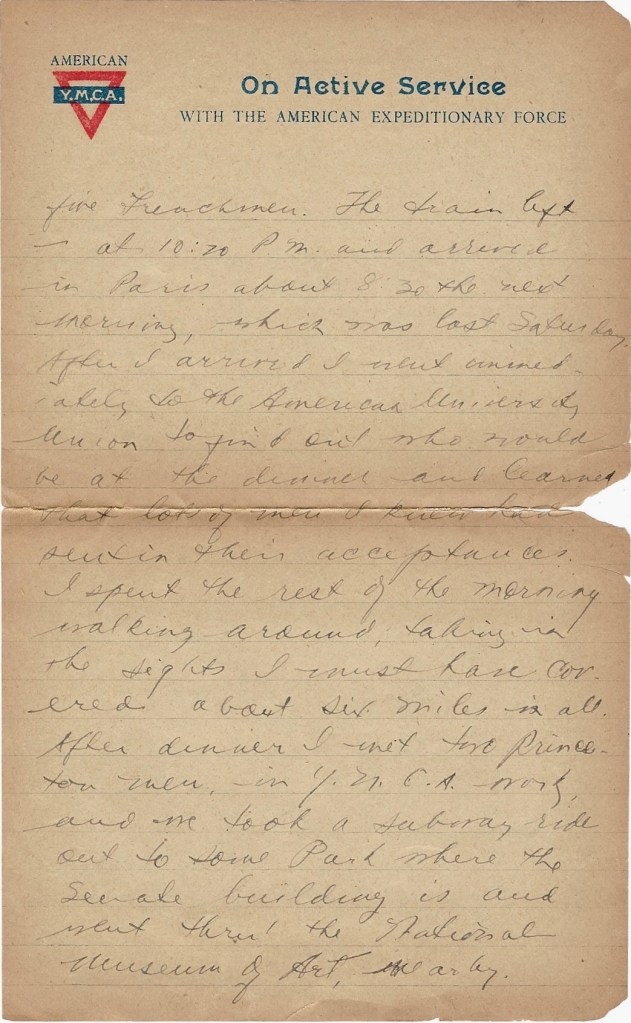 AMERICAN
Y.M.C.A.
On Active Service
WITH THE AMERICAN EXPEDITIONARY FORCE
five Frenchmen. The train left
at 10:20 P.M. and arrived
in Paris about 8 30 the next
morning, which was last Saturday.
After I arrived I went immed-
iately to the American University
Union to find out who would
be at the dinner and learned
that lots of men I knew had
sent in their acceptances.
I spent the rest of the morning
walking around, taking in
the sights I must have cov-
ered about six miles in all.
After dinner I met two Prince-
ton men, in Y.M.C.A. work,
and we took a subway ride
out to some Park where the
Senate building is and
went thru' the National
Museum of Art, nearby.